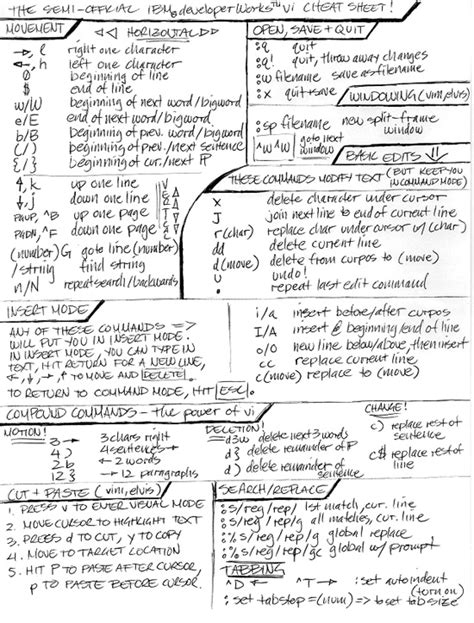 THE SEMI-OFFICIAL IBM developerWorks™ vi CHEAT SHEET!
MOVEMENT
◁◁ HORIZONTAL ▷▷
→, l right one character
←, h left one character
0 beginning of line
$ end of line
w/W beginning of next word/bigword
e/E end of next word/bigword
b/B beginning of prev. word/bigword
(/) beginning of prev./next sentence
{/} beginning of cur./next ¶
↑, k up one line
↓, j down one line
PGUP, ^B up one page
PGDN, ^F down one page
VERTICAL
(number)G goto line (number)
/string find string
n/N repeat search/backwards
OPEN, SAVE + QUIT
:q quit
:q! quit, throw away changes
:w filename save as filename
:x quit+save
WINDOWING (vim, elvis)
:sp filename new split-frame window
^W^W goto next window
BASIC EDITS ⇓
THESE COMMANDS MODIFY TEXT (BUT KEEP YOU IN COMMAND MODE)
x delete character under cursor
J join next line to end of current line
r(char) replace char under cursor w/(char)
dd delete current line
d(move) delete from curpos to (move)
u undo!
. repeat last edit command
INSERT MODE
ANY OF THESE COMMANDS =>
WILL PUT YOU IN INSERT MODE.
IN INSERT MODE, YOU CAN TYPE IN
TEXT, HIT RETURN FOR A NEW LINE,
←, ↓, →, ↑ TO MOVE AND DELETE.
TO RETURN TO COMMAND MODE, HIT ESC.
i/a insert before/after curpos
I/A insert @ beginning/end of line
o/O new line below/above, then insert
cc replace current line
c(move) replace to (move)
COMPOUND COMMANDS - the power of vi
MOTION!
3→ → 3 chars right
4) 4 sentences →
2b ← 2 words
12} → 12 paragraphs
DELETION!
d3w delete next 3 words
d} delete remainder of ¶
d) delete remainder of sentence
CHANGE!
c) replace rest of sentence
c$ replace rest of line
CUT + PASTE (vim, elvis)
1. PRESS v TO ENTER VISUAL MODE
2. MOVE CURSOR TO HIGHLIGHT TEXT
3. PRESS d TO CUT, y TO COPY
4. MOVE TO TARGET LOCATION
5. HIT P TO PASTE AFTER CURSOR,
p TO PASTE BEFORE CURSOR.
SEARCH/REPLACE
:s/reg/rep/ 1st match, cur. line
:s/reg/rep/g all matches, cur. line
:%s/reg/rep/g global replace
:%s/reg/rep/gc global w/prompt
TABBING
^D ← ^T → :set autoindent (turn on)
:set tabstop=(num) => to set tab size